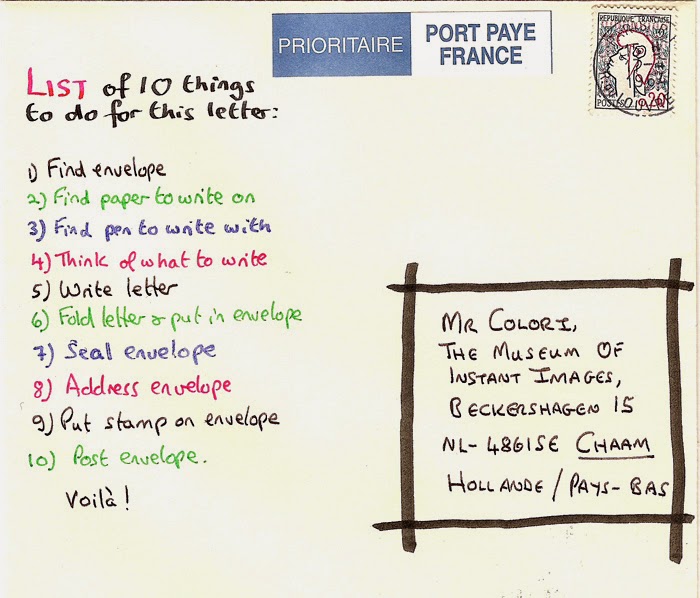 PRIORITAIRE
PORT PAYE
FRANCE
REPUBLIQUE FRANÇAISE
POSTES
0,20
LIST of 10 things
to do for this letter:
1) Find envelope
2) Find paper to write on
3) Find pen to write with
4) Think of what to write
5) Write letter
6) Fold letter & put in envelope
7) Seal envelope
8) Address envelope
9) Put stamp on envelope
10) Post envelope.
Voilà!
MR COLORI,
THE MUSEUM OF
INSTANT IMAGES,
BECKERSHAGEN 15
NL-4861SE CHAAM
HOLLANDE / PAYS-BAS